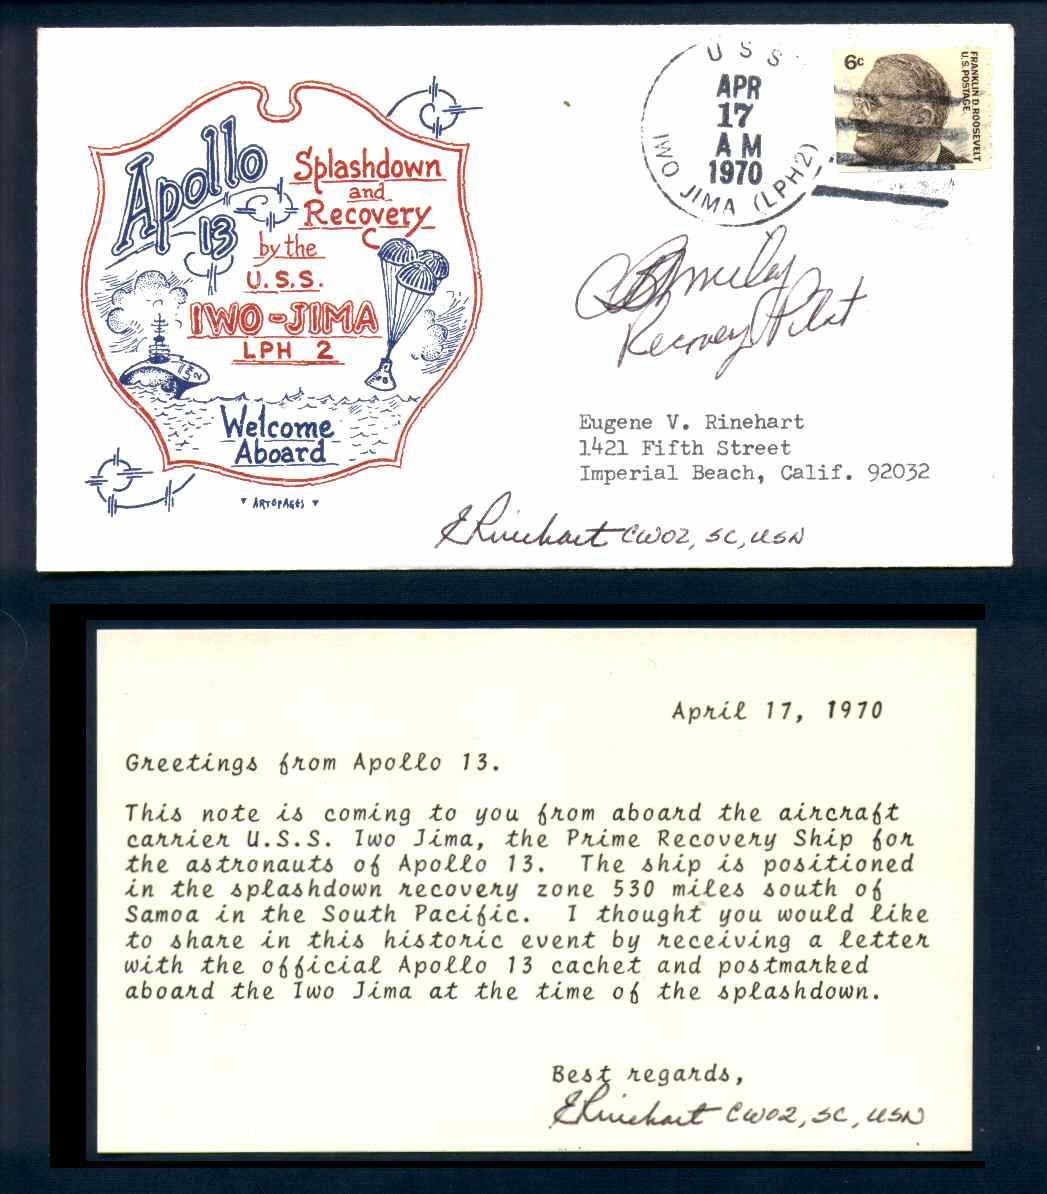 Apollo
13
Splashdown
and
Recovery
by the
U.S.S.
IWO-JIMA
LPH 2
Welcome
Aboard
ARTOPAGES
USS
IWO JIMA (LPH2)
APR
17
AM
1970
6c
FRANKLIN D. ROOSEVELT
U.S. POSTAGE
Recovery Pilot
Eugene V. Rinehart
1421 Fifth Street
Imperial Beach, Calif. 92032
E Rinehart CWO2, SC, USN
April 17, 1970
Greetings from Apollo 13.
This note is coming to you from aboard the aircraft
carrier U.S.S. Iwo Jima, the Prime Recovery Ship for
the astronauts of Apollo 13. The ship is positioned
in the splashdown recovery zone 530 miles south of
Samoa in the South Pacific. I thought you would like
to share in this historic event by receiving a letter
with the official Apollo 13 cachet and postmarked
aboard the Iwo Jima at the time of the splashdown.
Best regards,
E Rinehart CWO2, SC, USN